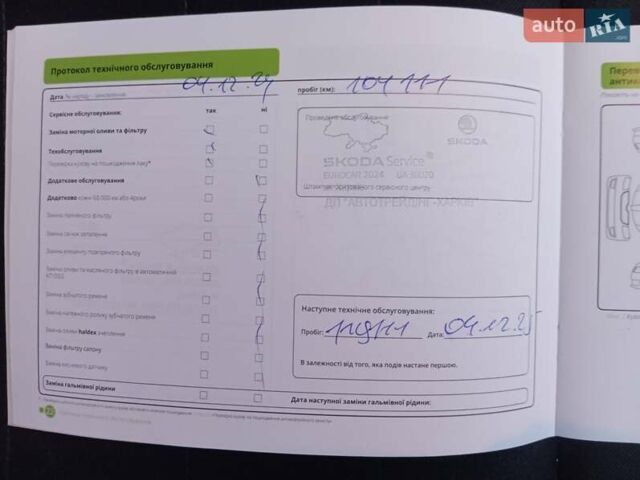 auto RIA.com
Протокол технічного обслуговування
Дата 04.12.24 пробіг (км): 104111
Сервісне обслуговування: так ні
Заміна моторної оливи та фільтру
Техобслуговування
Перевірка кузову на пошкодження лаку*
Додаткове обслуговування
Додатково кожні 60.000 км або 4роки
Заміна паливного фільтру
Заміна свічок запалення
Заміна елементу повітряного фільтру
Заміна оливи та масляного фільтру в автоматичній
Заміна зубчатого ременя
Заміна натяжного ролику зубчатого ременя
Заміна оливи haldex зчеплення
Заміна фільтру салону
Заміна гальмівної рідини
Проведене обслуговування
ŠKODA
ŠKODA Service
EUROCAR 2024 UA-30020
Штамп авторизованого сервісного центру
ДП "АВТОТРЕЙДІНГ-ХАРКІВ"
Наступне технічне обслуговування:
Пробіг: Дата: 04.12.25
В залежності від того, яка подія настане першою.
Дата наступної заміни гальмівної рідини:
22